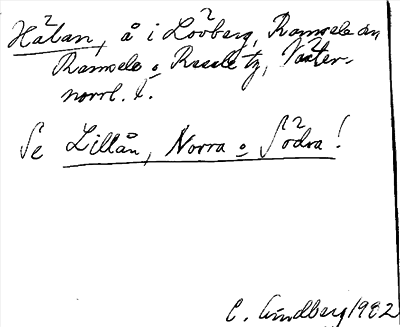 Håtan, å i Lövberg, Ramsele an
Ramsele o Resele tg, Väster-
norrl. l.
Se Lillån, Norra o Södra!
C. Lindberg 1982